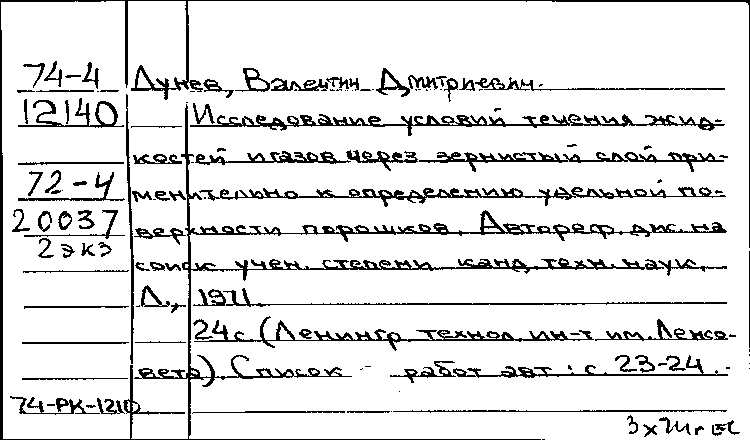 74-4 Лунев, Валентин Дмитриевич.
12140 Исследование условий течения жид-
костей и газов через зернистый слой при-
72-4 менительно к определению удельной по-
20037 верхности порошков. Автореф. дис. на
2 экз соиск. учен. степени канд. техн. наук.
Л., 1971.
24 с. (Ленингр. технол. ин-т им. Ленсо-
вета). Список работ авт.: с. 23-24.
74-РК-1210